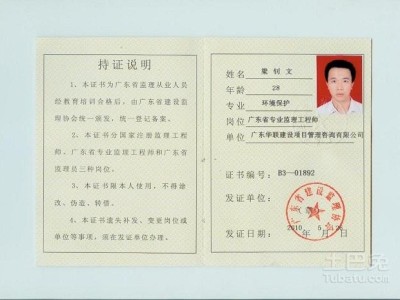 持证说明
1、本证书为广东省监理从业人员
经教育培训合格后，由广东省建设监
理协会统一颁发，统一登记备案。
2、本证书分国家注册监理工程
师、广东省专业监理工程师和广东省
监理员三种岗位。
3、本证书限本人使用，不得涂
改、伪造、转借。
4、本证书遗失补发、变更岗位或
单位等事项，须在发证单位办理。
姓名 梁钊文
年龄 28
专业 环境保护
岗位 广东省专业监理工程师
单位 广东华联建设项目管理咨询有限公司
证书编号: B3-01892
发证单位:
广东省建设监理协会
发证日期: 2010 年 5 月 日
土巴兔
Tubatu.com